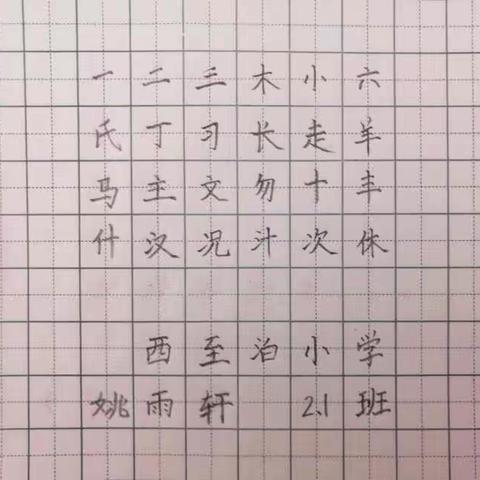 一二三木小六
氏丁习长走羊
马主文勿十丰
什汉况汁次休
西至泊小学
姚雨轩 2.1班